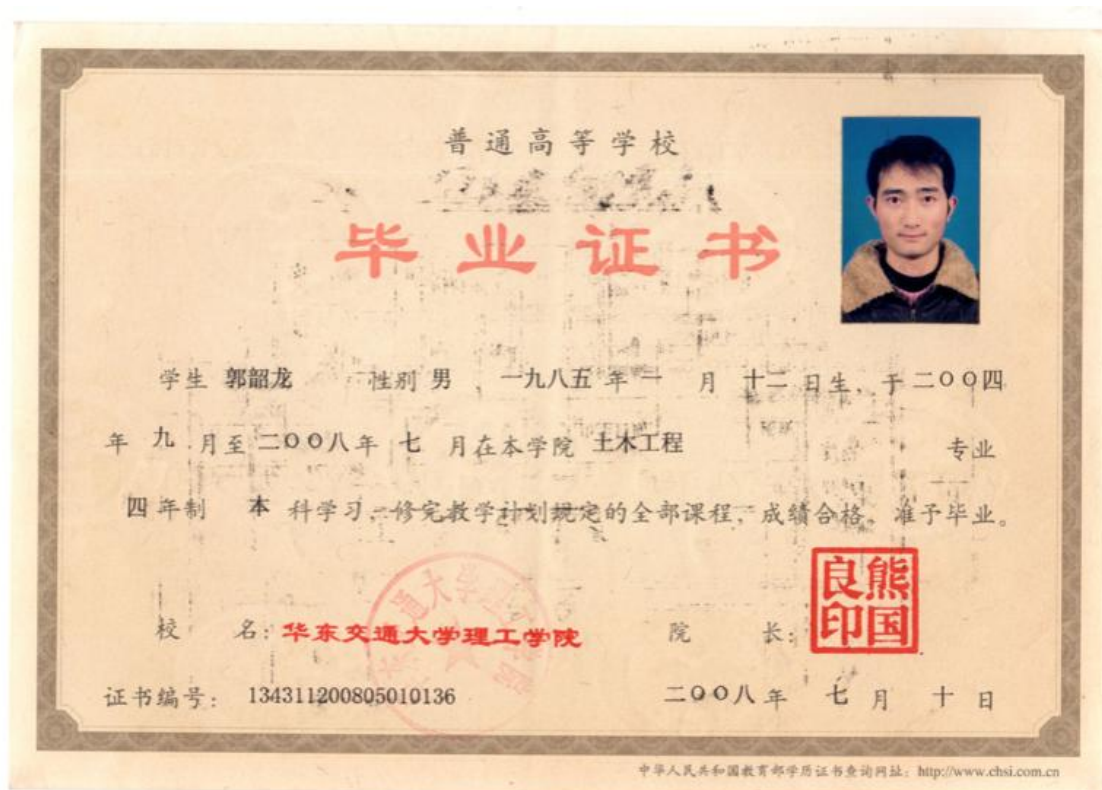 普通高等学校
毕业证书
学生 郭韶龙 性别 男 ，一九八五 年 一 月 十二 日生，于 二〇〇四
年 九 月至 二〇〇八年 七 月在本学院 土木工程 专业
四 年制 本 科学习，修完教学计划规定的全部课程，成绩合格，准予毕业。
校 名：华东交通大学理工学院 院 长：熊国良印
证书编号：134311200805010136 二〇〇八 年 七 月 十 日
中华人民共和国教育部学历证书查询网址：http://www.chsi.com.cn